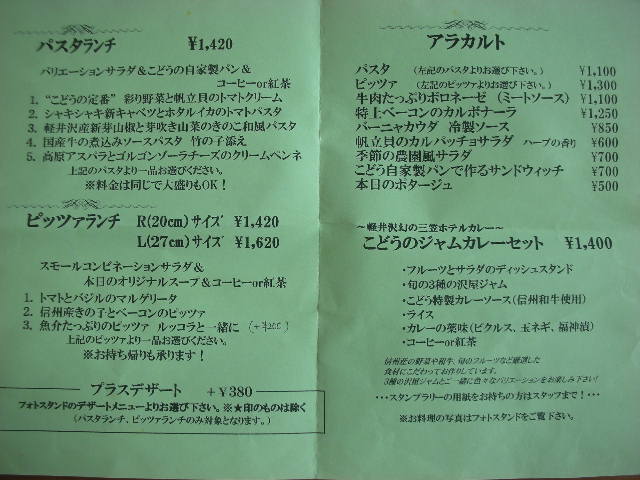 パスタランチ ¥1,420
バリエーションサラダ＆こどうの自家製パン＆
コーヒーor紅茶
1. “こどうの定番” 彩り野菜と帆立貝のトマトクリーム
2. シャキシャキ新キャベツとホタルイカのトマトパスタ
3. 軽井沢産新芽山椒と芽吹き山菜のきのこ和風パスタ
4. 国産牛の煮込みソースパスタ 竹の子添え
5. 高原アスパラとゴルゴンゾーラチーズのクリームペンネ
上記のパスタより一品お選びください。
※料金は同じで大盛りもOK！
ピッツァランチ R(20cm)サイズ ¥1,420
L(27cm)サイズ ¥1,620
スモールコンビネーションサラダ＆
本日のオリジナルスープ＆コーヒーor紅茶
1. トマトとバジルのマルゲリータ
2. 信州産きの子とベーコンのピッツァ
3. 魚介たっぷりのピッツァ ルッコラと一緒に (+¥200)
上記のピッツァより一品お選びください。
※お持ち帰りも承ります！
プラスデザート +¥380
フォトスタンドのデザートメニューよりお選び下さい。※★印のものは除く
(パスタランチ、ピッツァランチのみ対象となります。)
アラカルト
パスタ (左記のパスタよりお選び下さい。) ¥1,100
ピッツァ (左記のピッツァよりお選び下さい。) ¥1,300
牛肉たっぷりボロネーゼ (ミートソース) ¥1,100
特上ベーコンのカルボナーラ ¥1,250
バーニャカウダ 冷製ソース ¥850
帆立貝のカルパッチョサラダ ハーブの香り ¥600
季節の農園風サラダ ¥700
こどう自家製パンで作るサンドウィッチ ¥700
本日のポタージュ ¥500
～軽井沢幻の三笠ホテルカレー～
こどうのジャムカレーセット ¥1,400
・フルーツとサラダのディッシュスタンド
・旬の3種の沢屋ジャム
・こどう特製カレーソース(信州和牛使用)
・ライス
・カレーの薬味(ピクルス、玉ネギ、福神漬)
・コーヒーor紅茶
信州産の野菜や和牛、旬のフルーツなど厳選した
食材にこだわってお作りしています。
3種の沢屋ジャムとご一緒に色々なバリエーションをお楽しみ下さい!
・・・スタンプラリーの用紙をお持ちの方はスタッフまで！・・・
※お料理の写真はフォトスタンドをご覧下さい。